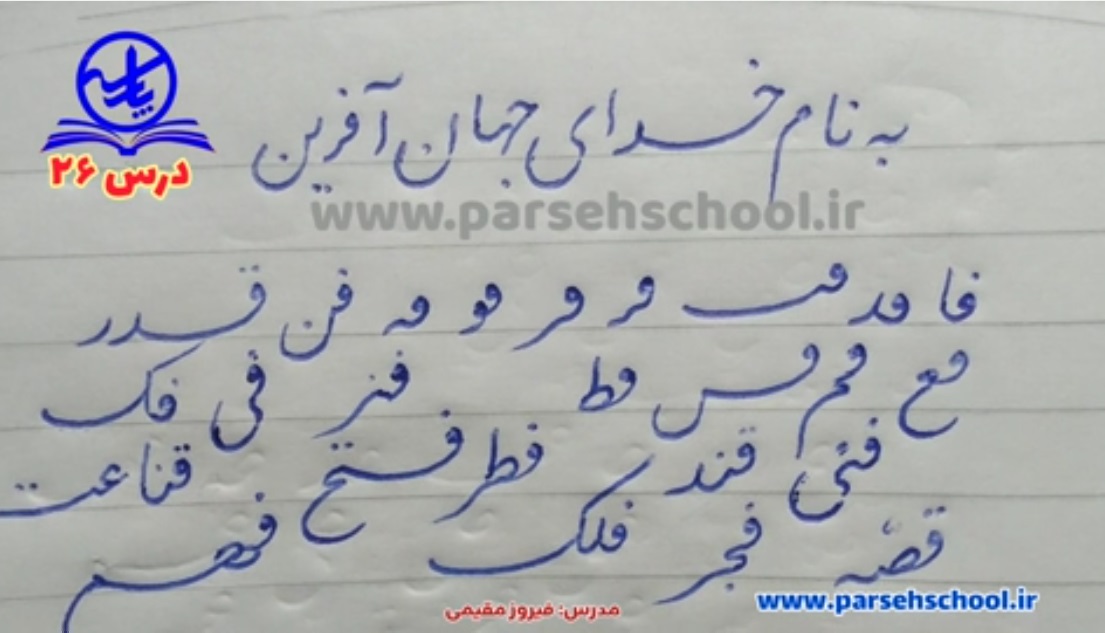 پارسه
درس ۲۶
به نام خدای جهان آفرین
www.parsehschool.ir
فا فد فب فر فر فو فه فن قدر
فع فم فس فط فنر فی فک
فنی قند فطر فتح قناعت
قصّه فجر فلک فهم
مدرس: فیروز مقیمی
www.parsehschool.ir